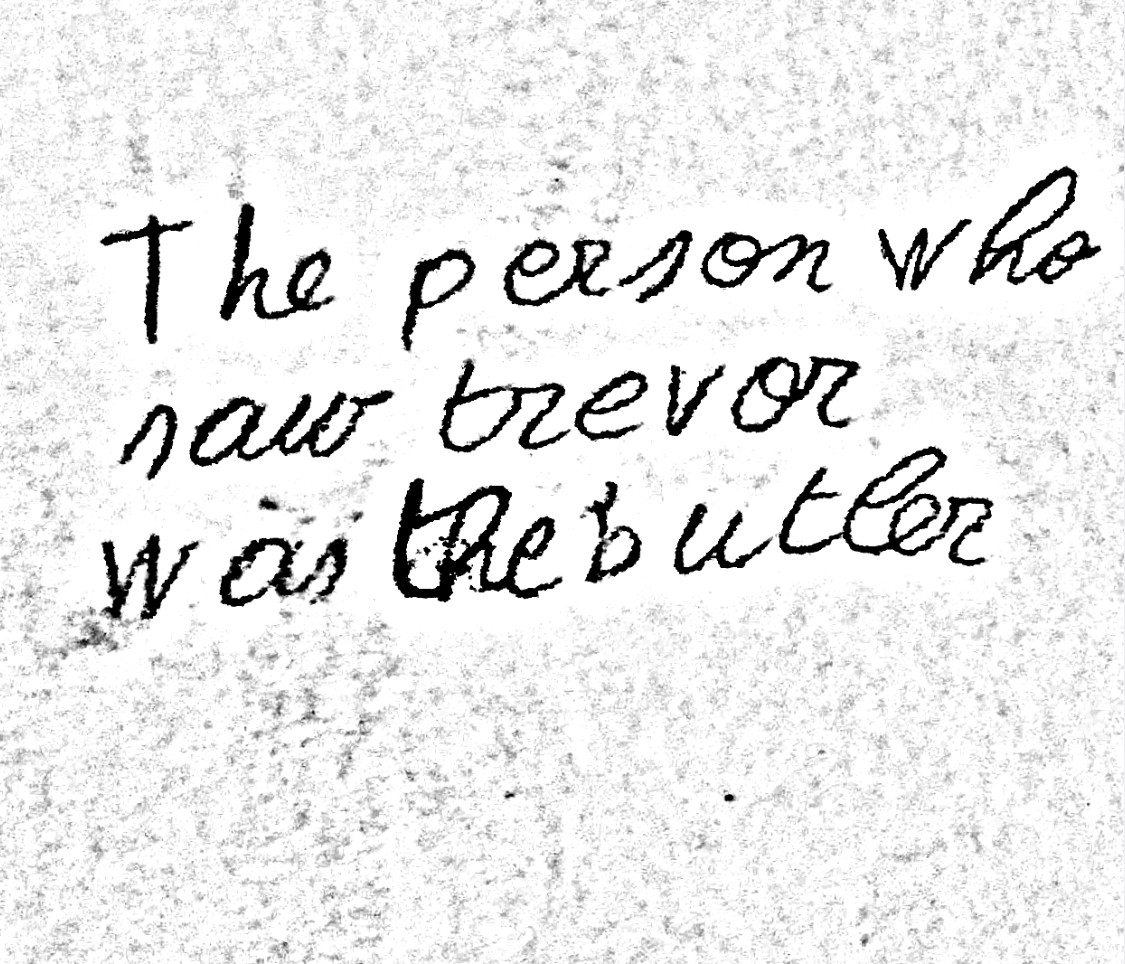 The person who
saw trevor
was the butler